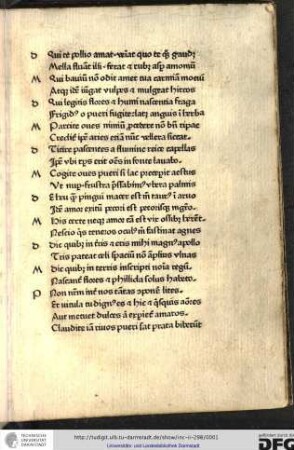 D Qui te pollio amat veniat quo te qͦꝫ gaudꝫ
Mella fluāt illi ferat & rubꝫ aspꝫ amomū
M Qui bauiū nō odit amet tua carmīa moeui
Atqꝫ idē iūgat vulpes & mulgeat hircos
D Qui legitis flores & humi nascentia fraga
Frigidꝰ o pueri fugite latꝫ anguis ī herba
M Parcite oues nimiū procedere nō bn̄ ripae
Credit ipse aries etiā nūc vellera siccat
D Titire pascentes a flumine reice capellas
Ipse vbi tꝑs erit oēs in fonte lauabo
M Cogite oues pueri si lac praeceperit aestus
Ut nup frustra pressabimꝰ vbera palmis
D Eheu qͣꝫ pingui macer est mͥ taurꝰ ī aruo
Idē amor exitiū pecori est pecorisqꝫ mgrō
M His certe neqꝫ amor cā est vix ossibꝫ hærēt
Nescio qͥs teneros oculꝰ mͥ fascinat agnos
D Dic quibꝫ in terris & eris mihi magnꝰ apollo
Tris pateat cæli spaciū nō ampliꝰ vlnas
M Dic quibꝫ in terris inscripti noīa regū
Nascant̄ flores & phillida solus habeto
P Non nr̄m int̄ vos tātas cōponere lites
Et uitula tu dignꝰ es & hic & qͥsquis aōres
Aut metuet dulces a expiet̄ amaros
Claudite iā riuos pueri sat prata biberūt
TECHNISCHE
UNIVERSITÄT
DARMSTADT
http://tudigit.ulb.tu-darmstadt.de/show/inc-ii-296/0001
Universitäts- und Landesbibliothek Darmstadt
gefördert durch die
DFG